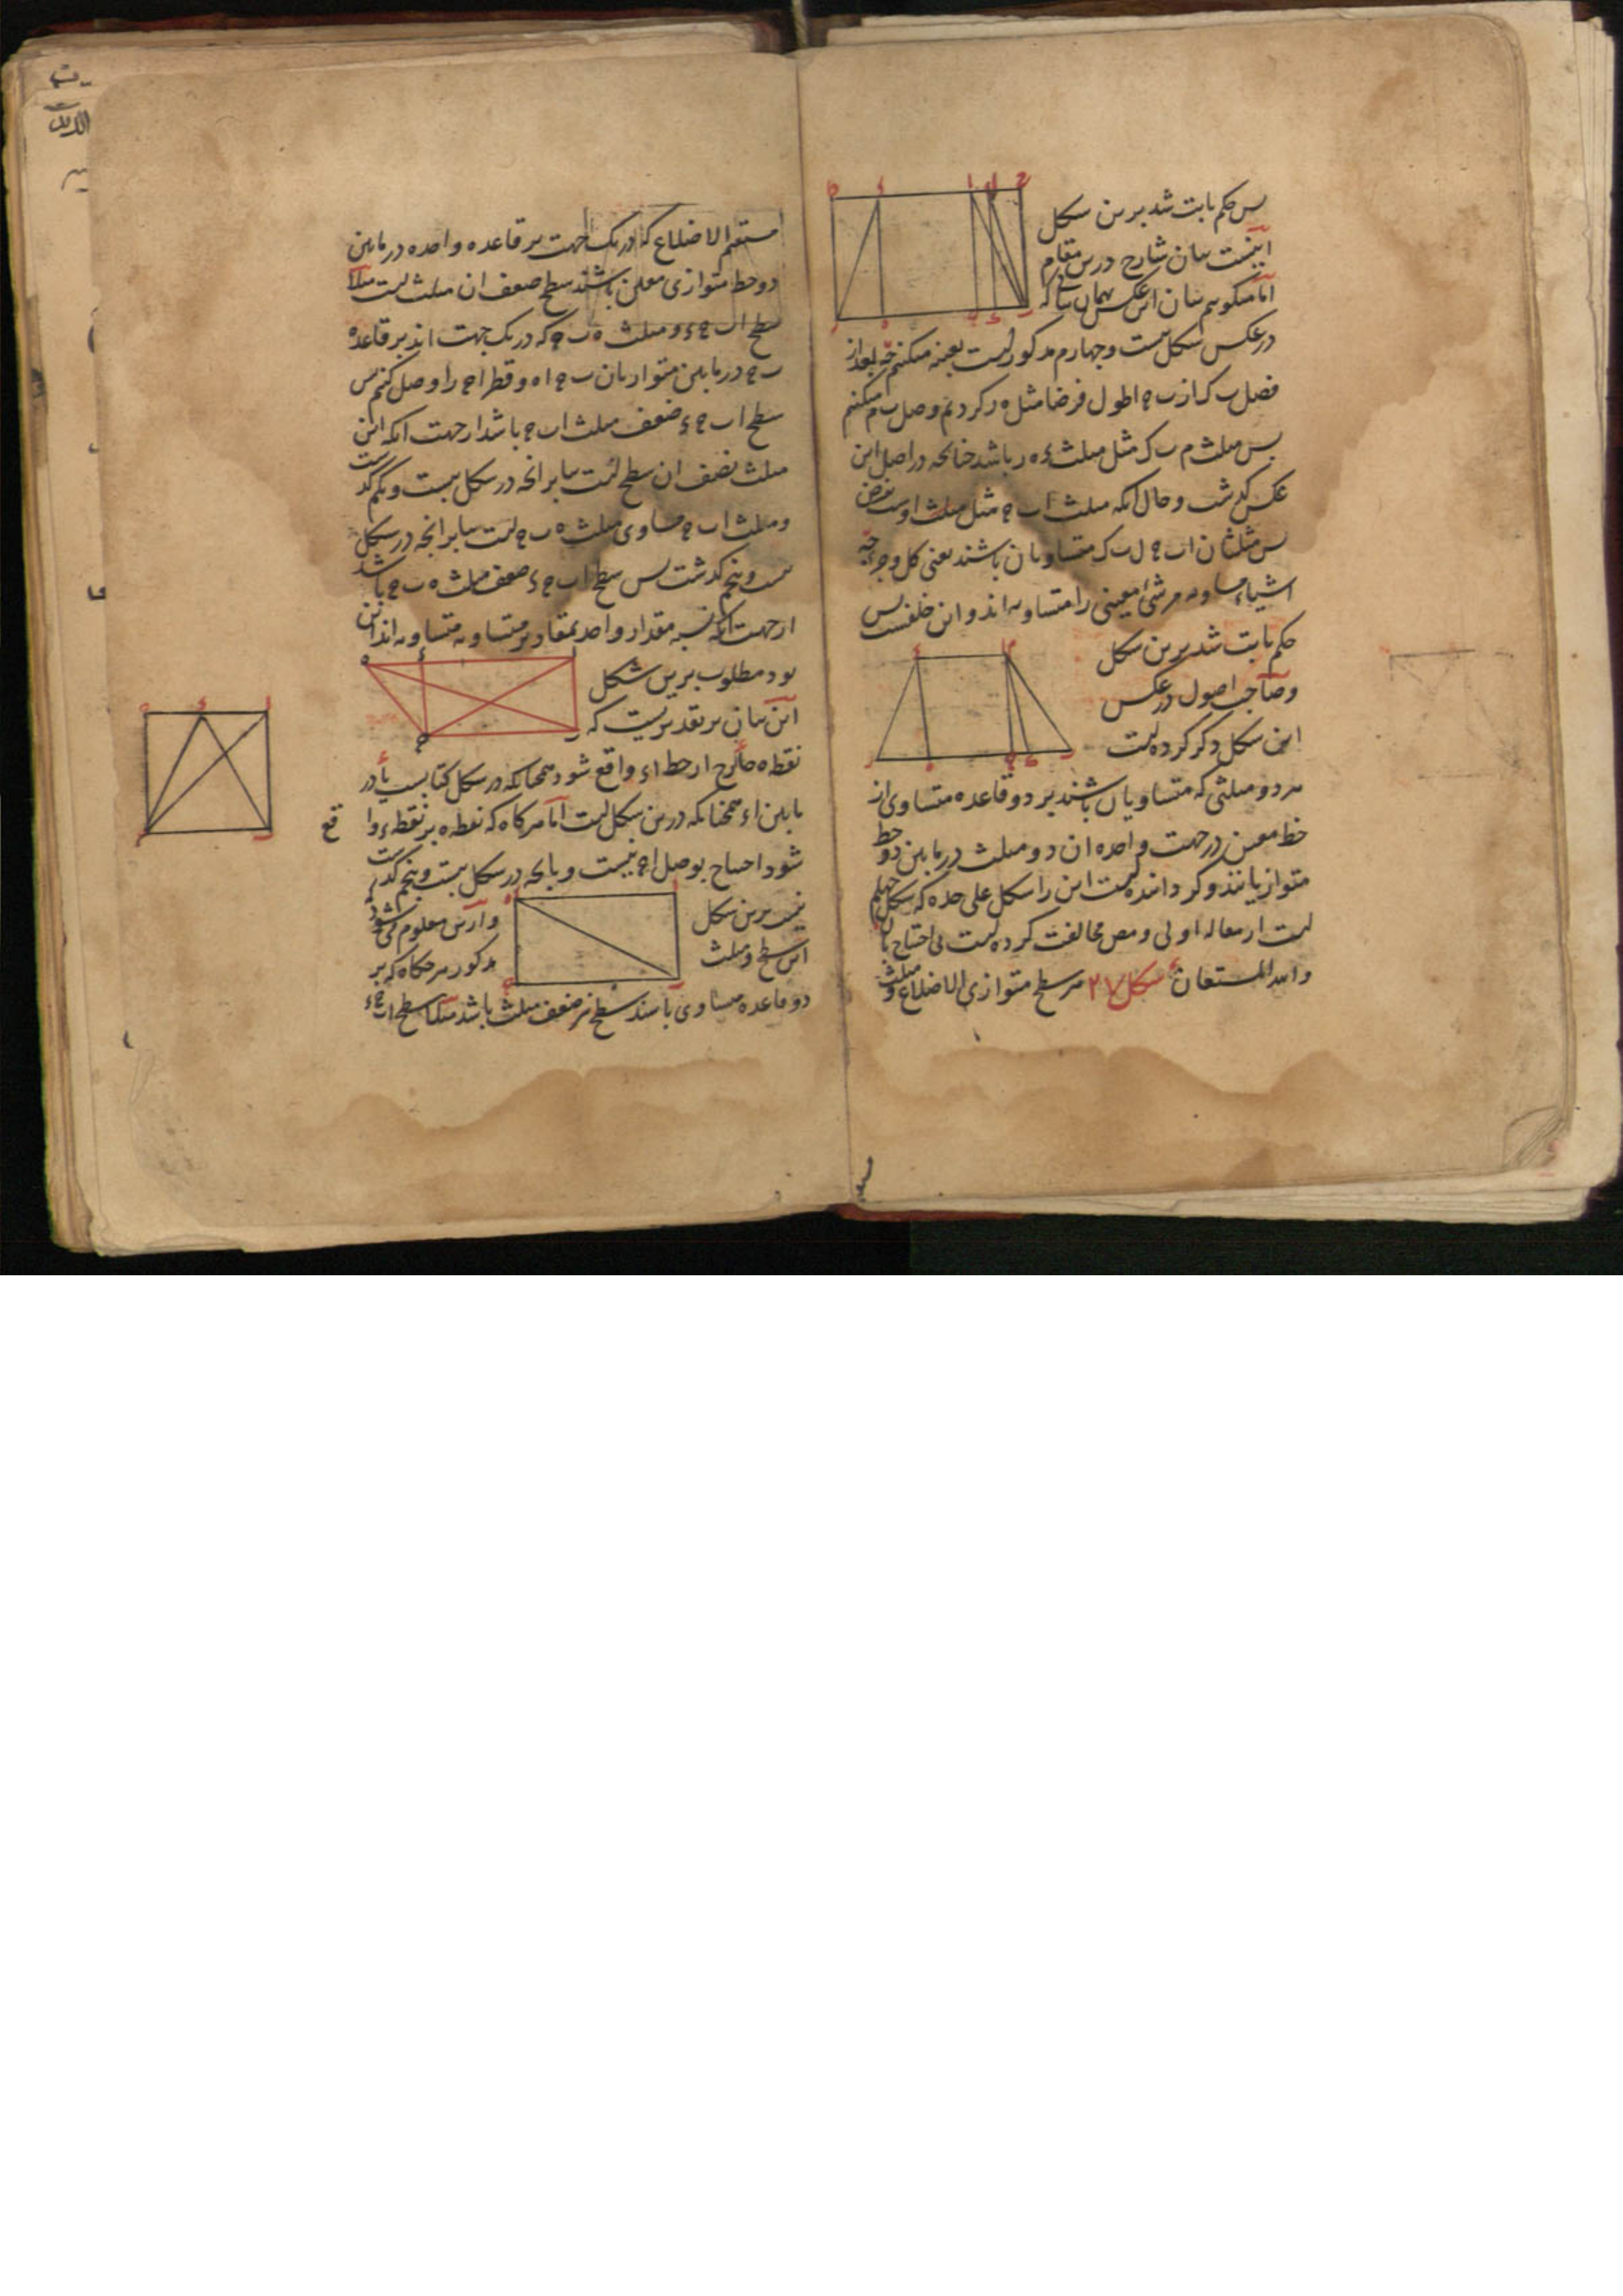 پس حکم ثابت شد برین شکل
اینست بیان شارح درین مقام
اما میگویم بیان این عکس بهمان که
در عکس شکل بیست و چهارم مذکور است بعینه میکنیم چه بعد از
فصل ب ک از ب ح اطول فرضا مثل ه ر کردیم وصل ب م میکنیم
پس مثلث م ب ک مثل مثلث ء ه ر باشد چنانچه در اصل این
عکس گذشت و حال آنکه مثلث ا ب ح مثل مثلث اوست بفرض
پس مثلثان ا ب ح ل ب ک متساویان باشند یعنی کل و جزء چه
اشیاء مساویه مر شئ معینی را متساویه اند و این خلفست پس
حکم ثابت شد برین شکل
وصاحب اصول در عکس
این شکل ذکر کرده است
هر دو مثلثی که متساویان باشند بر دو قاعده متساوی از
خط معین در جهت واحده ان دو مثلث در مابین دو خط
متوازیانند و کردانده است این را شکل علی حده که شکل چهلم
است از مقاله اولی و مص مخالفت کرده است بی احتیاج بان
والله المستعان شکل ۲۷ هر سطح متوازی الاضلاع و مثلث
مستقیم الاضلاع که در یک جهت بر قاعده واحده در مابین
دو خط متوازی معین باشند سطح ضعف ان مثلث است مثلا
سطح ا ب ح ء و مثلث ه ب ح که در یک جهت اند بر قاعده
ب ح در مابین متوازیان ب ح ا ه و قطر ا ح را وصل کنیم پس
سطح ا ب ح ء ضعف مثلث ا ب ح باشد از جهت آنکه این
مثلث نصف ان سطح است بنابر آنچه در شکل بیست و یکم گذشت
و مثلث ا ب ح مساوی مثلث ه ب ح است بنابر آنچه در شکل
بیست و پنجم گذشت پس سطح ا ب ح ء ضعف مثلث ه ب ح باشد
از جهت آنکه نسبه مقدار واحد بمقادیر متساویه متساویه اند این
بود مطلوب برین شکل
این بیان بر تقدیریست که
نقطه ه خارج از خط ا ء واقع شود همچنانکه در شکل کتابست یا در
مابین ا ء همچنانکه درین شکل است اما هرکاه که نقطه ه بر نقطه ء وا
قع
شود احتیاج بوصل ا ح نیست و بانچه در شکل بیست و پنجم گذشت
نیز برین شکل
وازین معلوم می شود که
این سطح و مثلث
مذکور هرکاه که بر
دو قاعده مساوی باشند سطح نیز ضعف مثلث باشد مثلا سطح ا ب ح ء